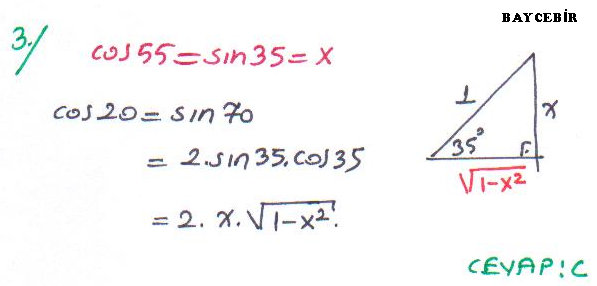 BAYCEBİR
3./ cos55=sin35=x
cos20=sin70
=2.sin35.cos35
=2.x.√1-x².
1
x
35°
√1-x²
CEVAP:C